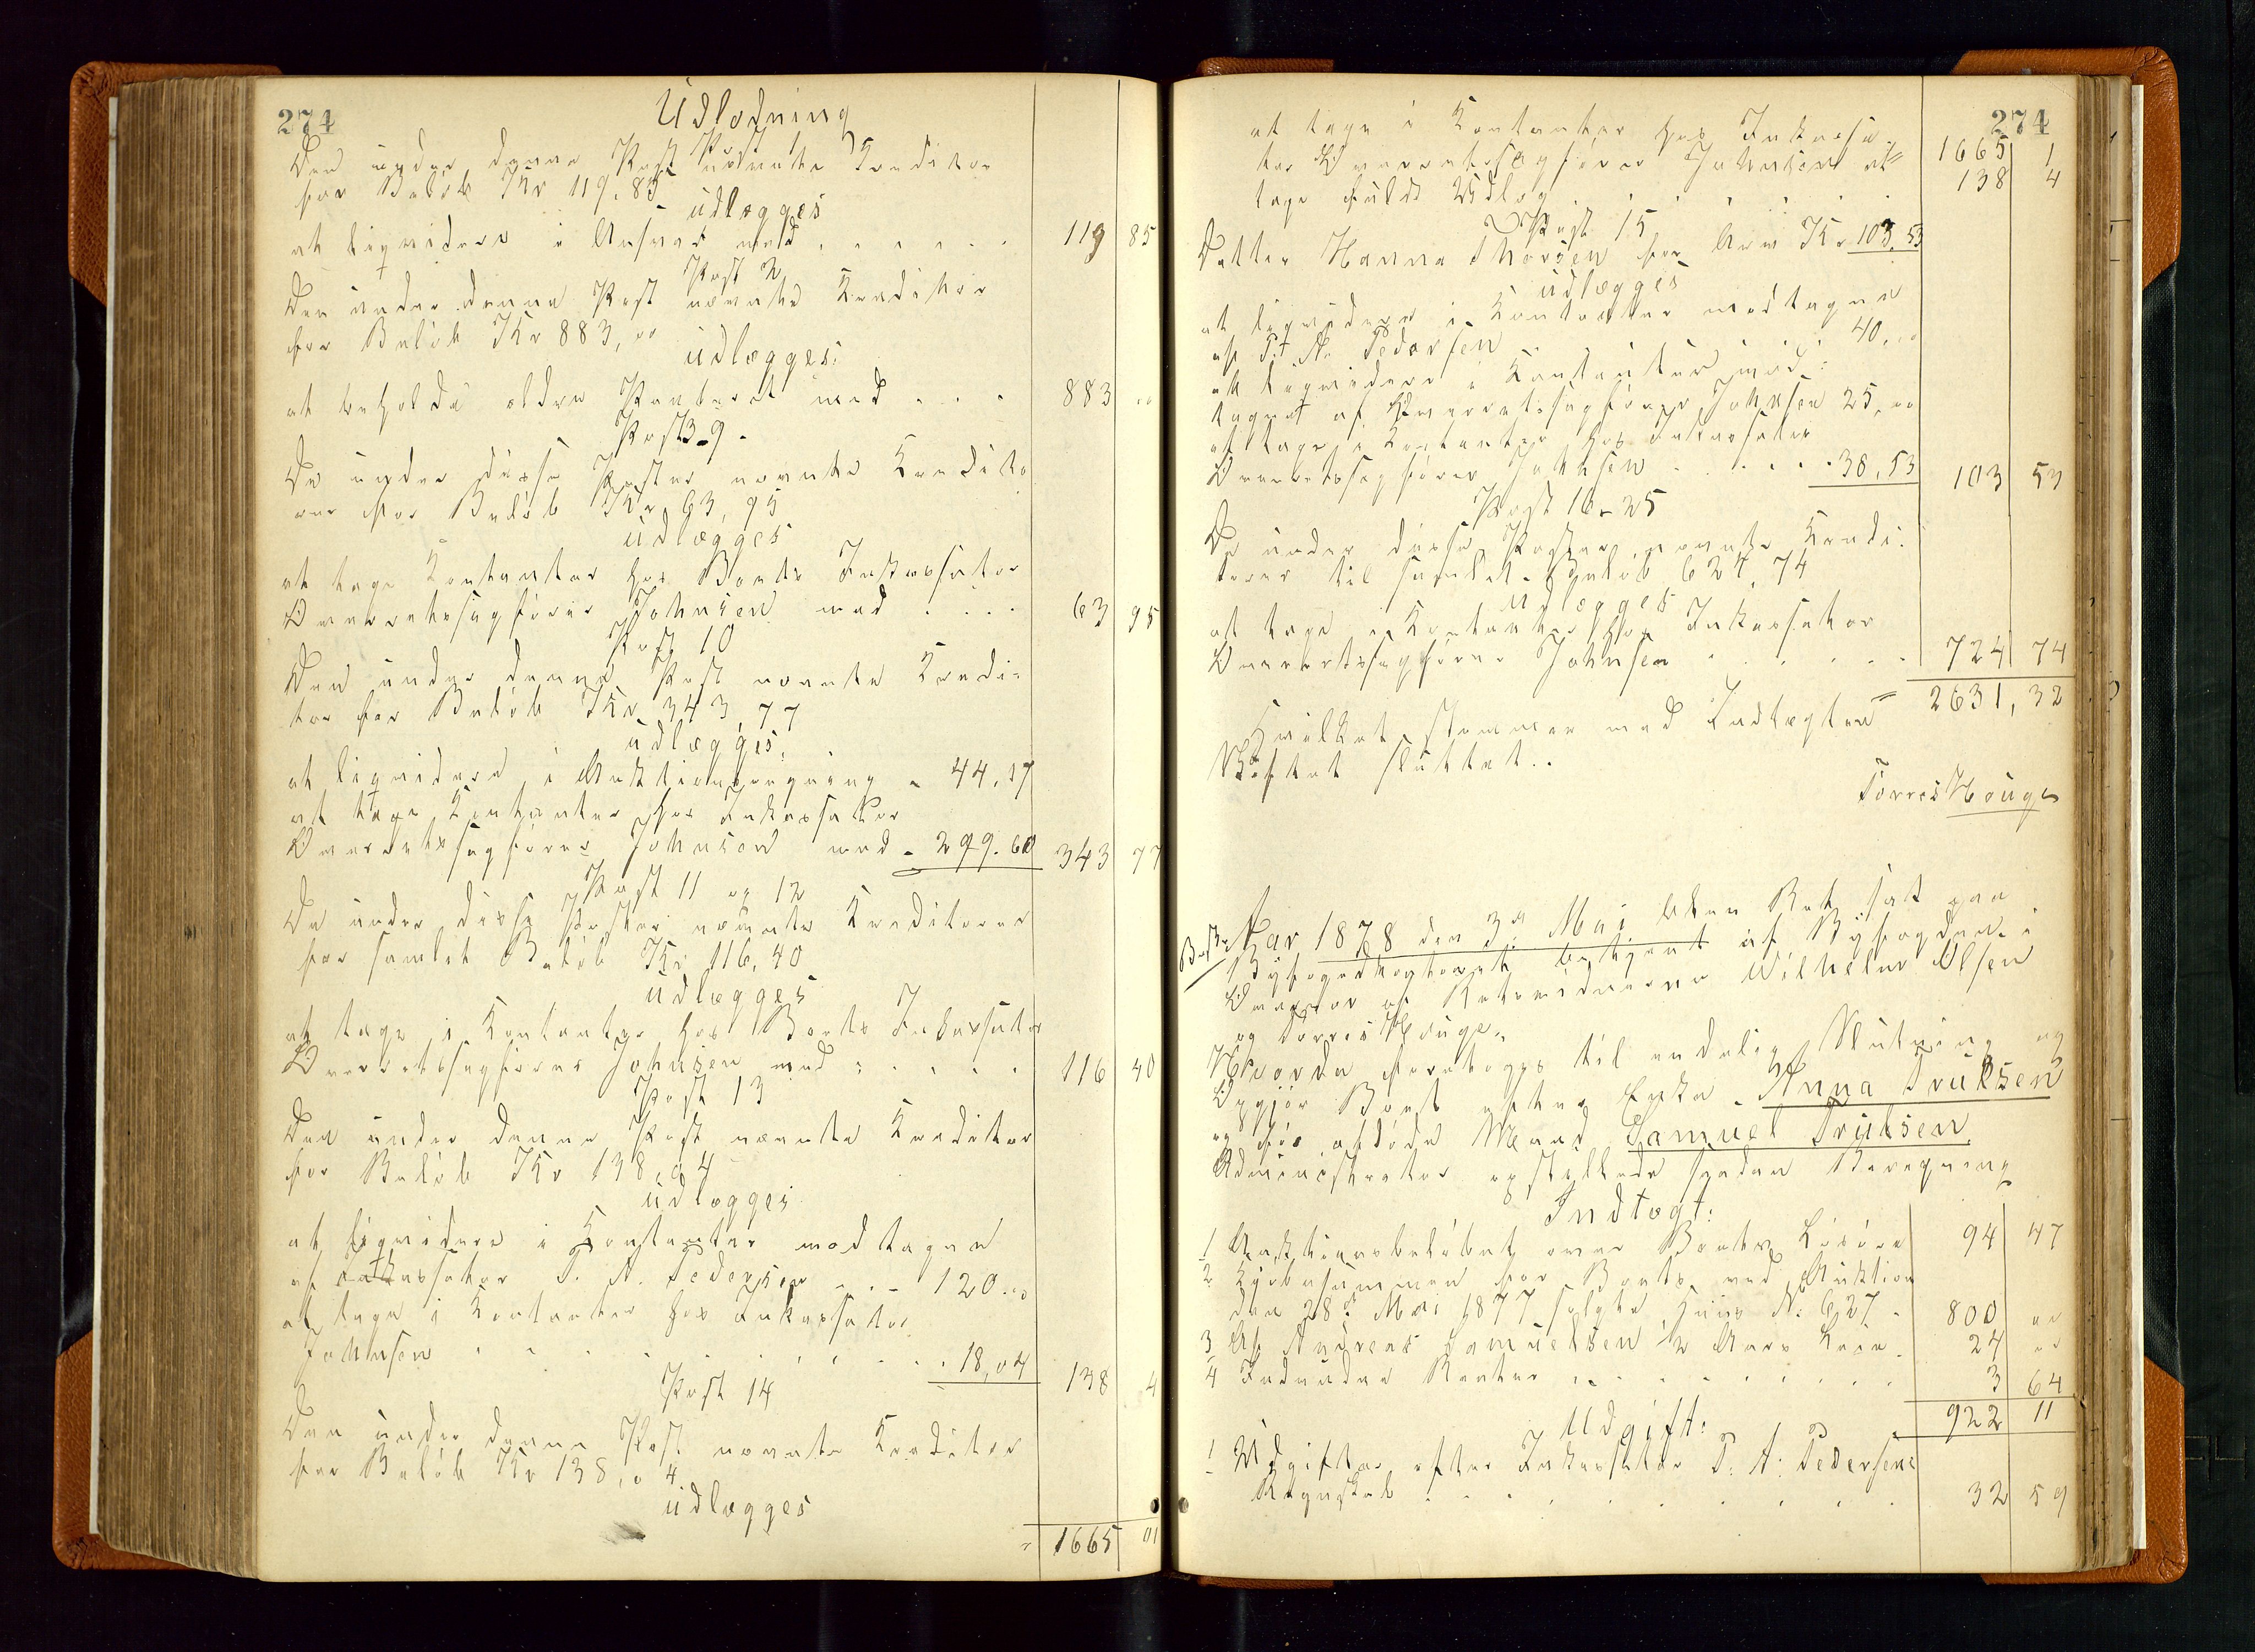 274
Udlodning
Post 1
Den under denne Post nævnte Kreditor
for Beløb Kr 119,85
udlægges
at liqvidere i Ansvar med . . . . . . 119 85
Post 2
Den under denne Post nævnte Kreditor
for Beløb Kr 883,00
udlægges:
at beholde ældre Panteret med . . . 883 00
Post 3-9.
De under disse Poster nævnte Kredito
rer for Beløb Kr 63,95
udlægges
at tage Kontanter hos Boets Inkassator
Overretssagfører Johnsen med . . . . 63 95
Post 10
Den under denne Post nævnte Kredi-
tor for Beløb Kr 343,77
udlægges.
at liqvidere i Auktionsregning - 44,17
at tage Kontanter hos Inkassator
Overretssagfører Johnsen med - 299.60 343 77
Post 11 og 12
De under disse Poster nævnte Kreditorer
for samlet Beløb Kr 116,40
udlægges
at tage i Kontanter hos Boets Inkassator
Overretssagfører Johnsen med . . . . . 116 40
Post 13
Den under denne Post nævnte Kreditor
for Beløb Kr 138,04
udlægges
at liqvidere i Kontanter modtagne
af Inkassator P. A. Pedersen . . - 120.00
at tage i Kontanter hos Inkassator
Johnsen . . . . . . . . . . 18,04 138 4
Post 14
Den under denne Post nævnte Kreditor
for Beløb Kr 138,04
udlægges
1665 01
274
at tage i Kontanter hos Inkassa- 1665 1
tor Overretssagfører Johnsen at
tage fuldt Udlæg . . . . . . 138 4
Post 15
Datter Hanna Thorsen for Arv Kr 103,53
udlægges
at liqvidere i Kontanter modtagne
af P. A. Pedersen . . . . . 40,00
at liqvidere i Kontanter mod-
tagne af Overretssagfører Johnsen 25,00
at tage i Kontanter hos Inkassator
Overretssagfører Johnsen . . . . . . 38,53 103 53
Post 16-25
De under disse Poster nævnte Kredi-
torer til samlet Beløb 624,74
udlægges
at tage i Kontanter hos Inkassator
Overretssagfører Johnsen . . . . . . 724 74
2631,32
Hvilket stemmer med Indtægten
Skiftet sluttet..
Torres Houge
Aar 1878 den 3die Mai blev Ret sat paa
Byfogedkontoret betjent af Byfogden i
og Retsvidnerne Wilhelm Olsen
og Torres Houge.
Hvorda foretoges til endelig Slutning og
Opgjør Boet efter Enke Anna Trulsen
og før afdøde Mand Samuel Trulsen.
Administrator opstillede saadan Beregning
Indtægt:
1 Auktionsbeløbet over Boets Løsøre 94 47
2 Kjøbesummen for Boets ved Auktion
den 28de Mai 1877 solgte Huus N: 627 - 800 00
3 Af Andreas Samuelsen 2 Aars Leie. 24 00
4 Indvundne Renter . . . . . . . . . 3 64
922 11
Udgift:
1 Udgifter efter Inkassator P. A. Pedersens
Regnskab . . . . . . . . . 32 59